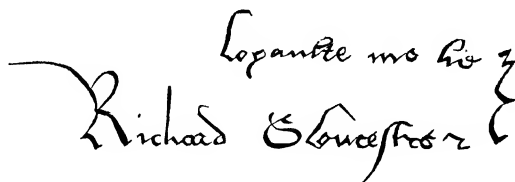 Loyaulte me lie
Richard Gloucestre